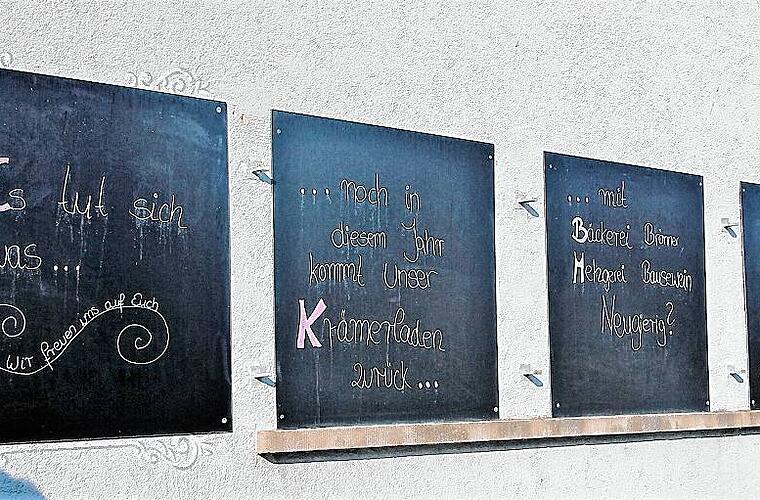 Es tut sich
was...
Wir freuen uns auf Euch
... noch in
diesem Jahr
kommt unser
Krämerladen
zurück...
... mit
Bäckerei Brönner
Metzgerei Bausewein
Neugierig?